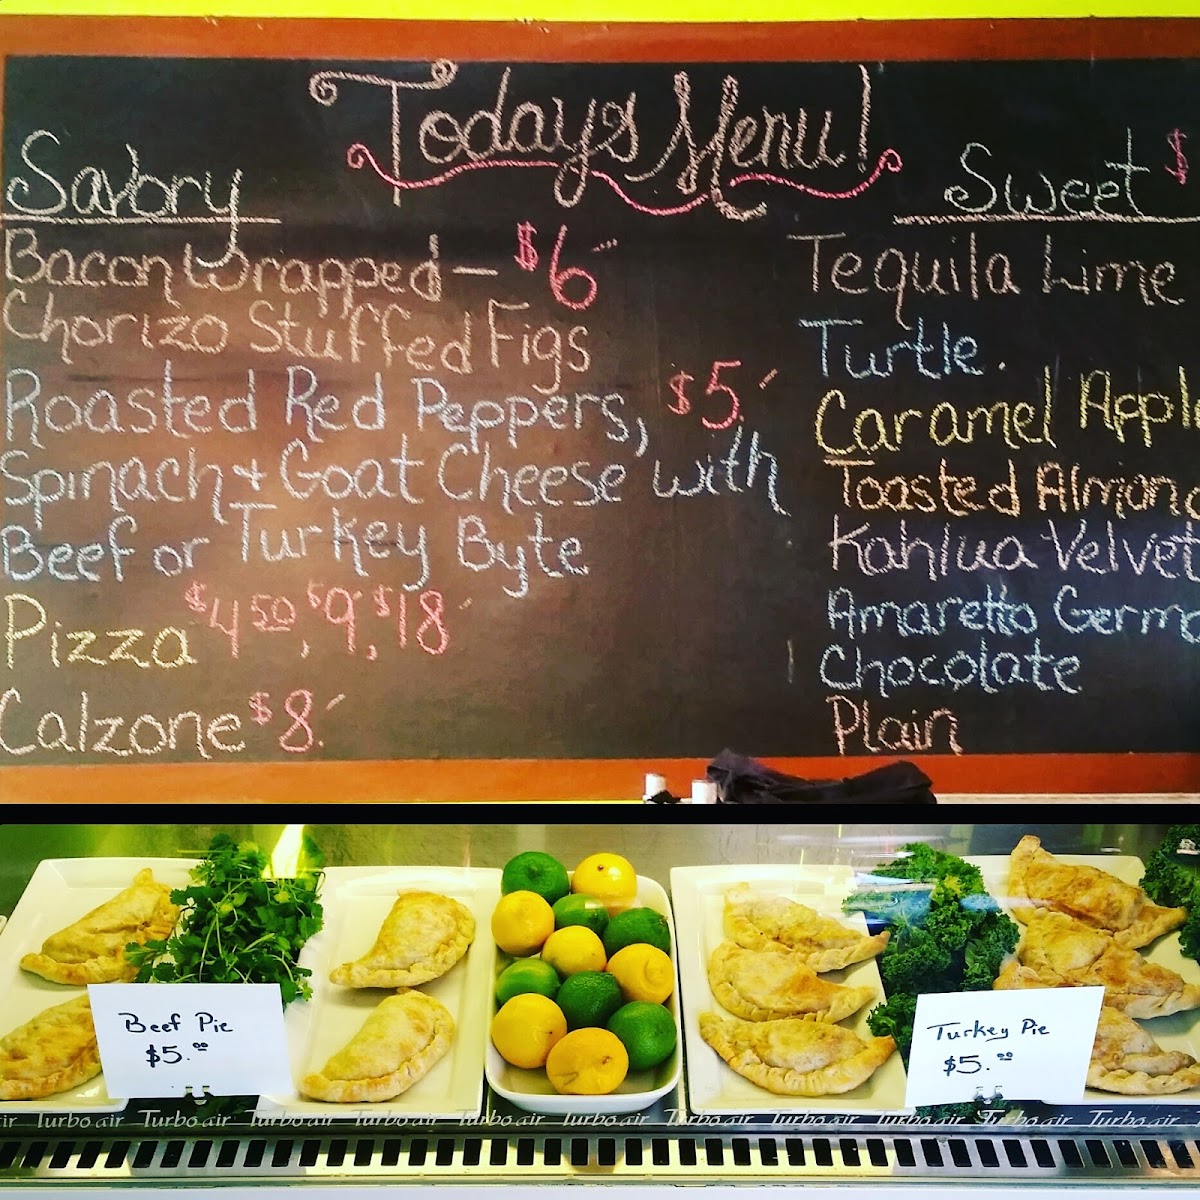 Today's Menu!
Savory
Bacon Wrapped — $6
Chorizo Stuffed Figs
Roasted Red Peppers, $5.
Spinach + Goat Cheese with
Beef or Turkey Byte
Pizza $4.50, $9, $18
Calzone $8.
Sweet $
Tequila Lime
Turtle.
Caramel Appl
Toasted Almond
Kahlua Velvet
Amaretto Germa
Chocolate
Plain
Beef Pie
$5.00
Turkey Pie
$5.00
ir Turbo air Turbo air Turbo air Turbo air Turbo air Turbo air Turbo air Turbo air Turbo air Turbo air Turbo air